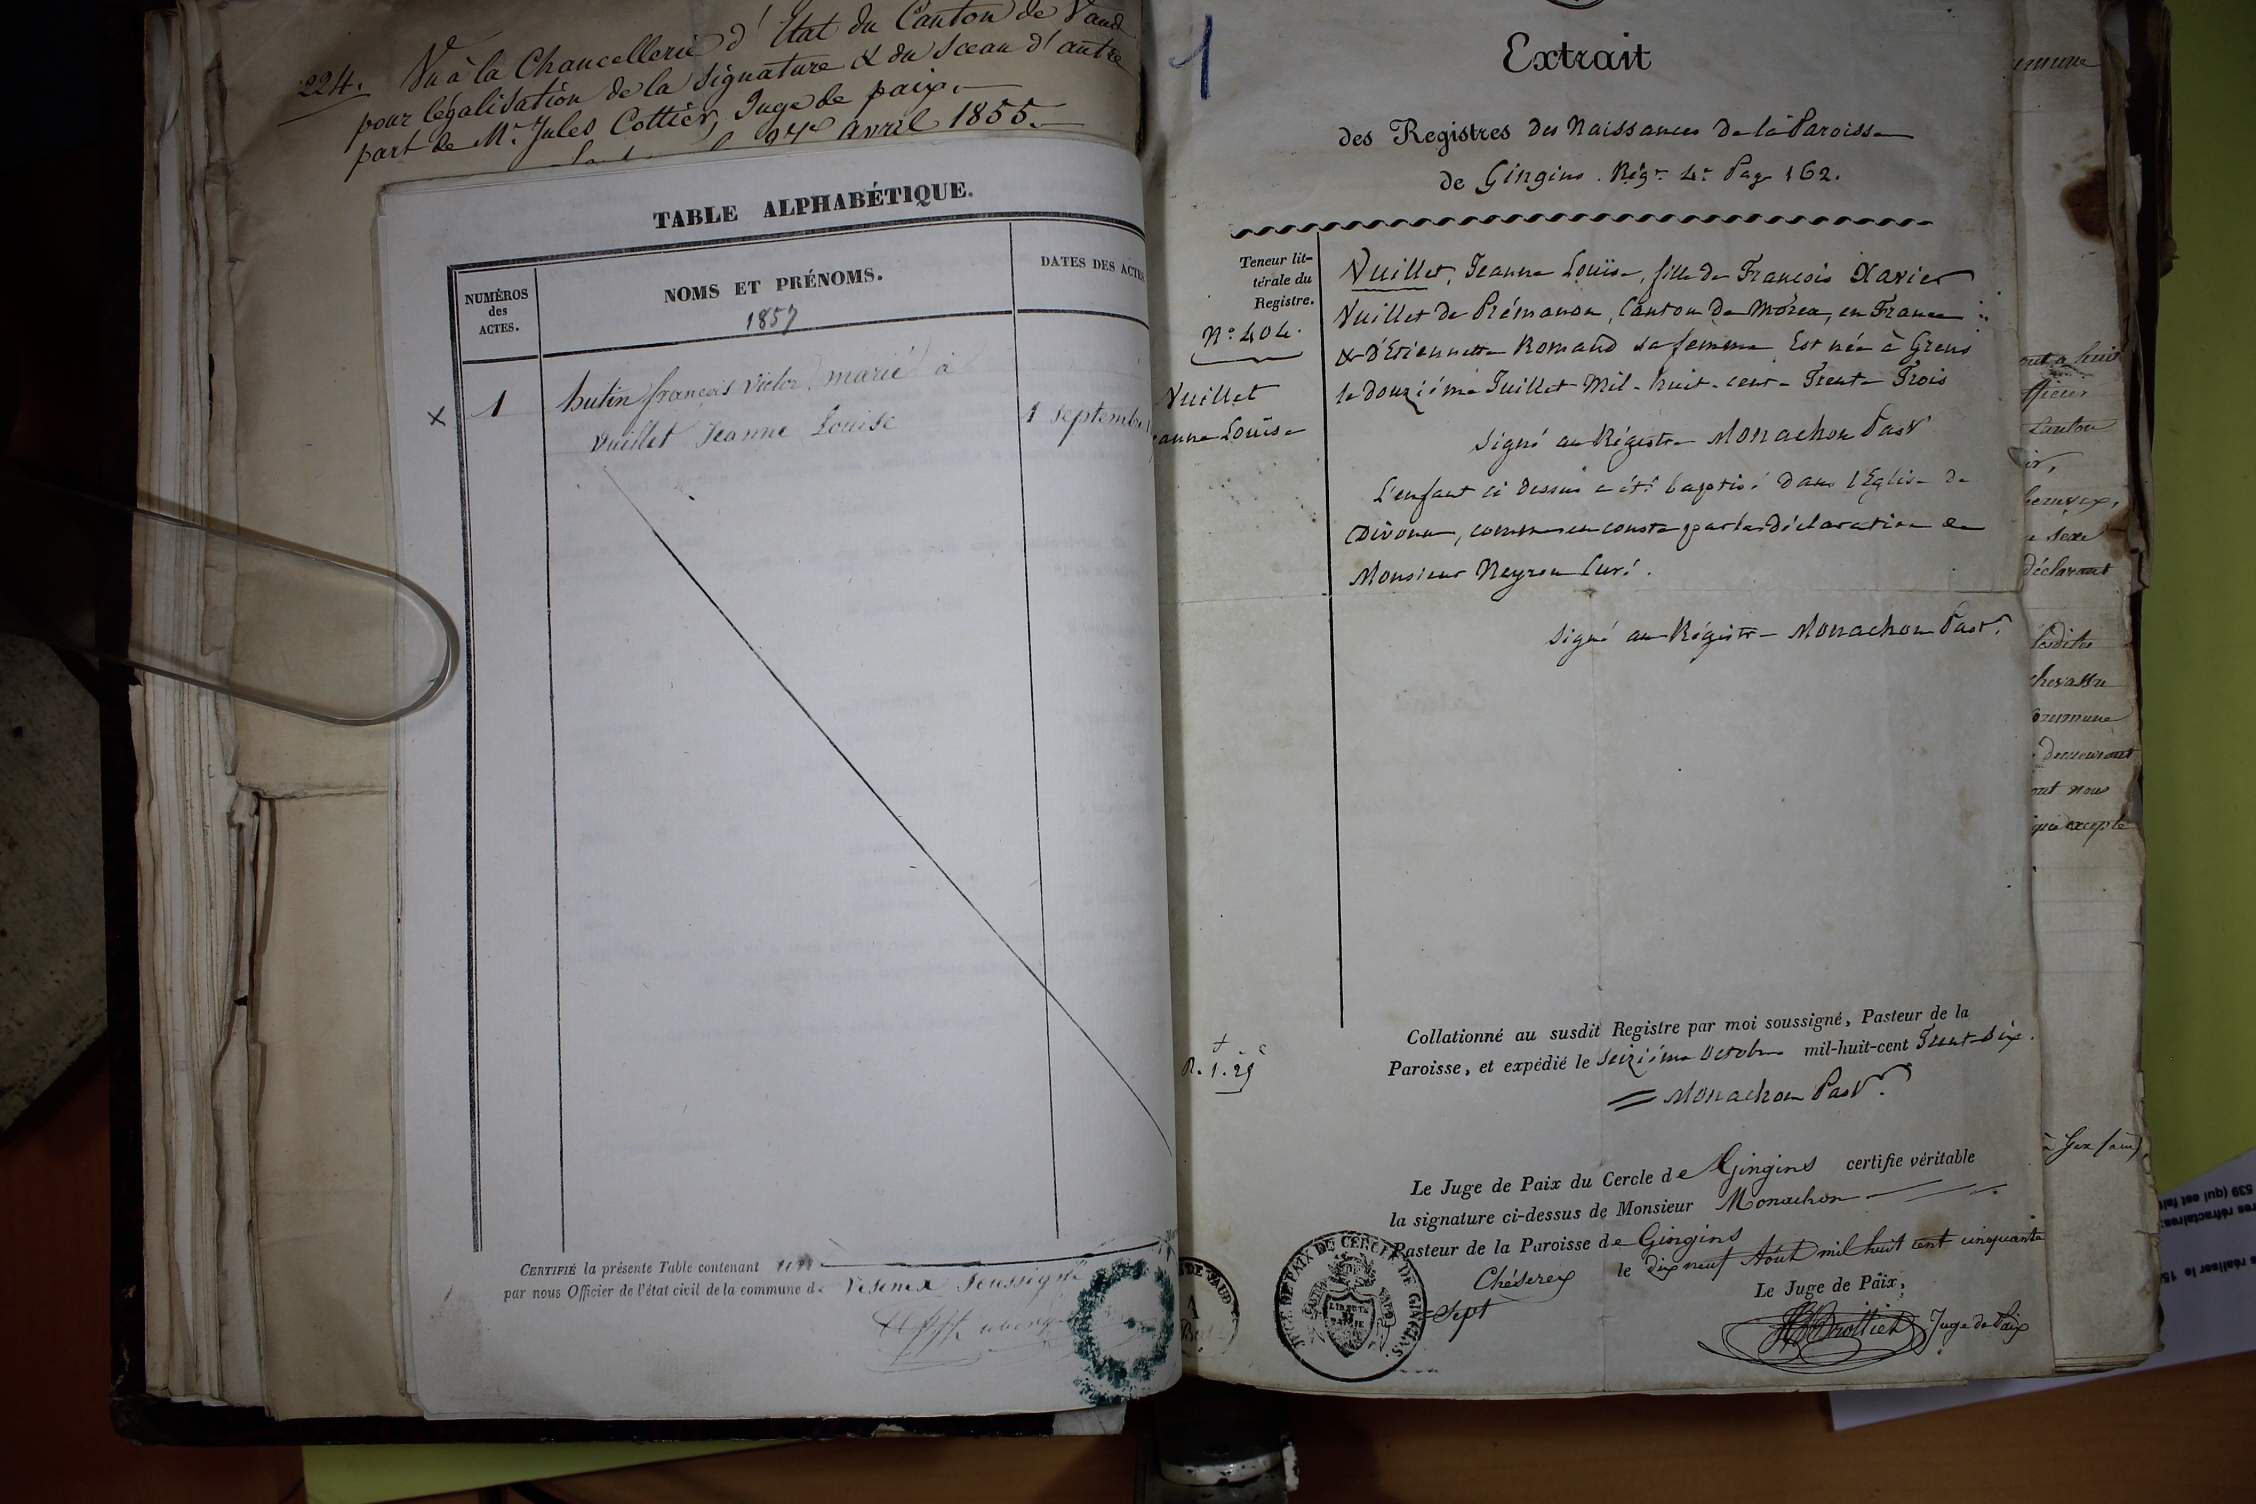 224. Vu à la Chancellerie d'Etat du Canton de Vaud
pour légalisation de la signature & du sceau d'autre
part de Mr. Jules Cottier, Juge de paix.
avril 1855.
TABLE ALPHABÉTIQUE.
NUMÉROS
des
ACTES.
NOMS ET PRÉNOMS.
1857
DATES DES ACTES
X 1 hutin françois victor, marié à
Vuillet Jeanne Louise
1 septembre
CERTIFIÉ la présente Table contenant
par nous Officier de l'état civil de la commune de Vesenex Soussigné
1
Extrait
des Registres des Naissances de la Paroisse
de Gingins. Régr. 4e Page 162.
Teneur lit-
térale du
Registre.
No. 404.
Vuillet
Jeanne Louïse
Vuillet, Jeanne Louïse, fille de François Xavier
Vuillet de Prémanon, Canton de Morez, en France
& d'Etiennette Romand sa femme Est née à Grens
le Douzième Juillet Mil-huit-cent-Trente Trois
Signé au Régistre Monachon Past
L'enfant ci dessus a été baptisé dans l'Eglise de
Divonne, comme en conste par la Déclaration de
Monsieur Neyron Curé.
Signé au Régistre Monachon Past.
Collationné au susdit Registre par moi soussigné, Pasteur de la
Paroisse, et expédié le Seizième Octobre mil-huit-cent Trente Six.
Monachon Past.
Le Juge de Paix du Cercle de Gingins certifie véritable
la signature ci-dessus de Monsieur Monachon
Pasteur de la Paroisse de Gingins
Chéserex le dix neuf Août mil huit cent cinquante
Sept
Le Juge de Paix,
Juge de Paix
JUGE DE PAIX DU CERCLE DE GINGINS.
LIBERTÉ
ET
PATRIE
CANTON DE VAUD
ommune
officier
canton
sexe
déclarant
lesdites
commune
demeurant
ont nous
à Gex (ain)